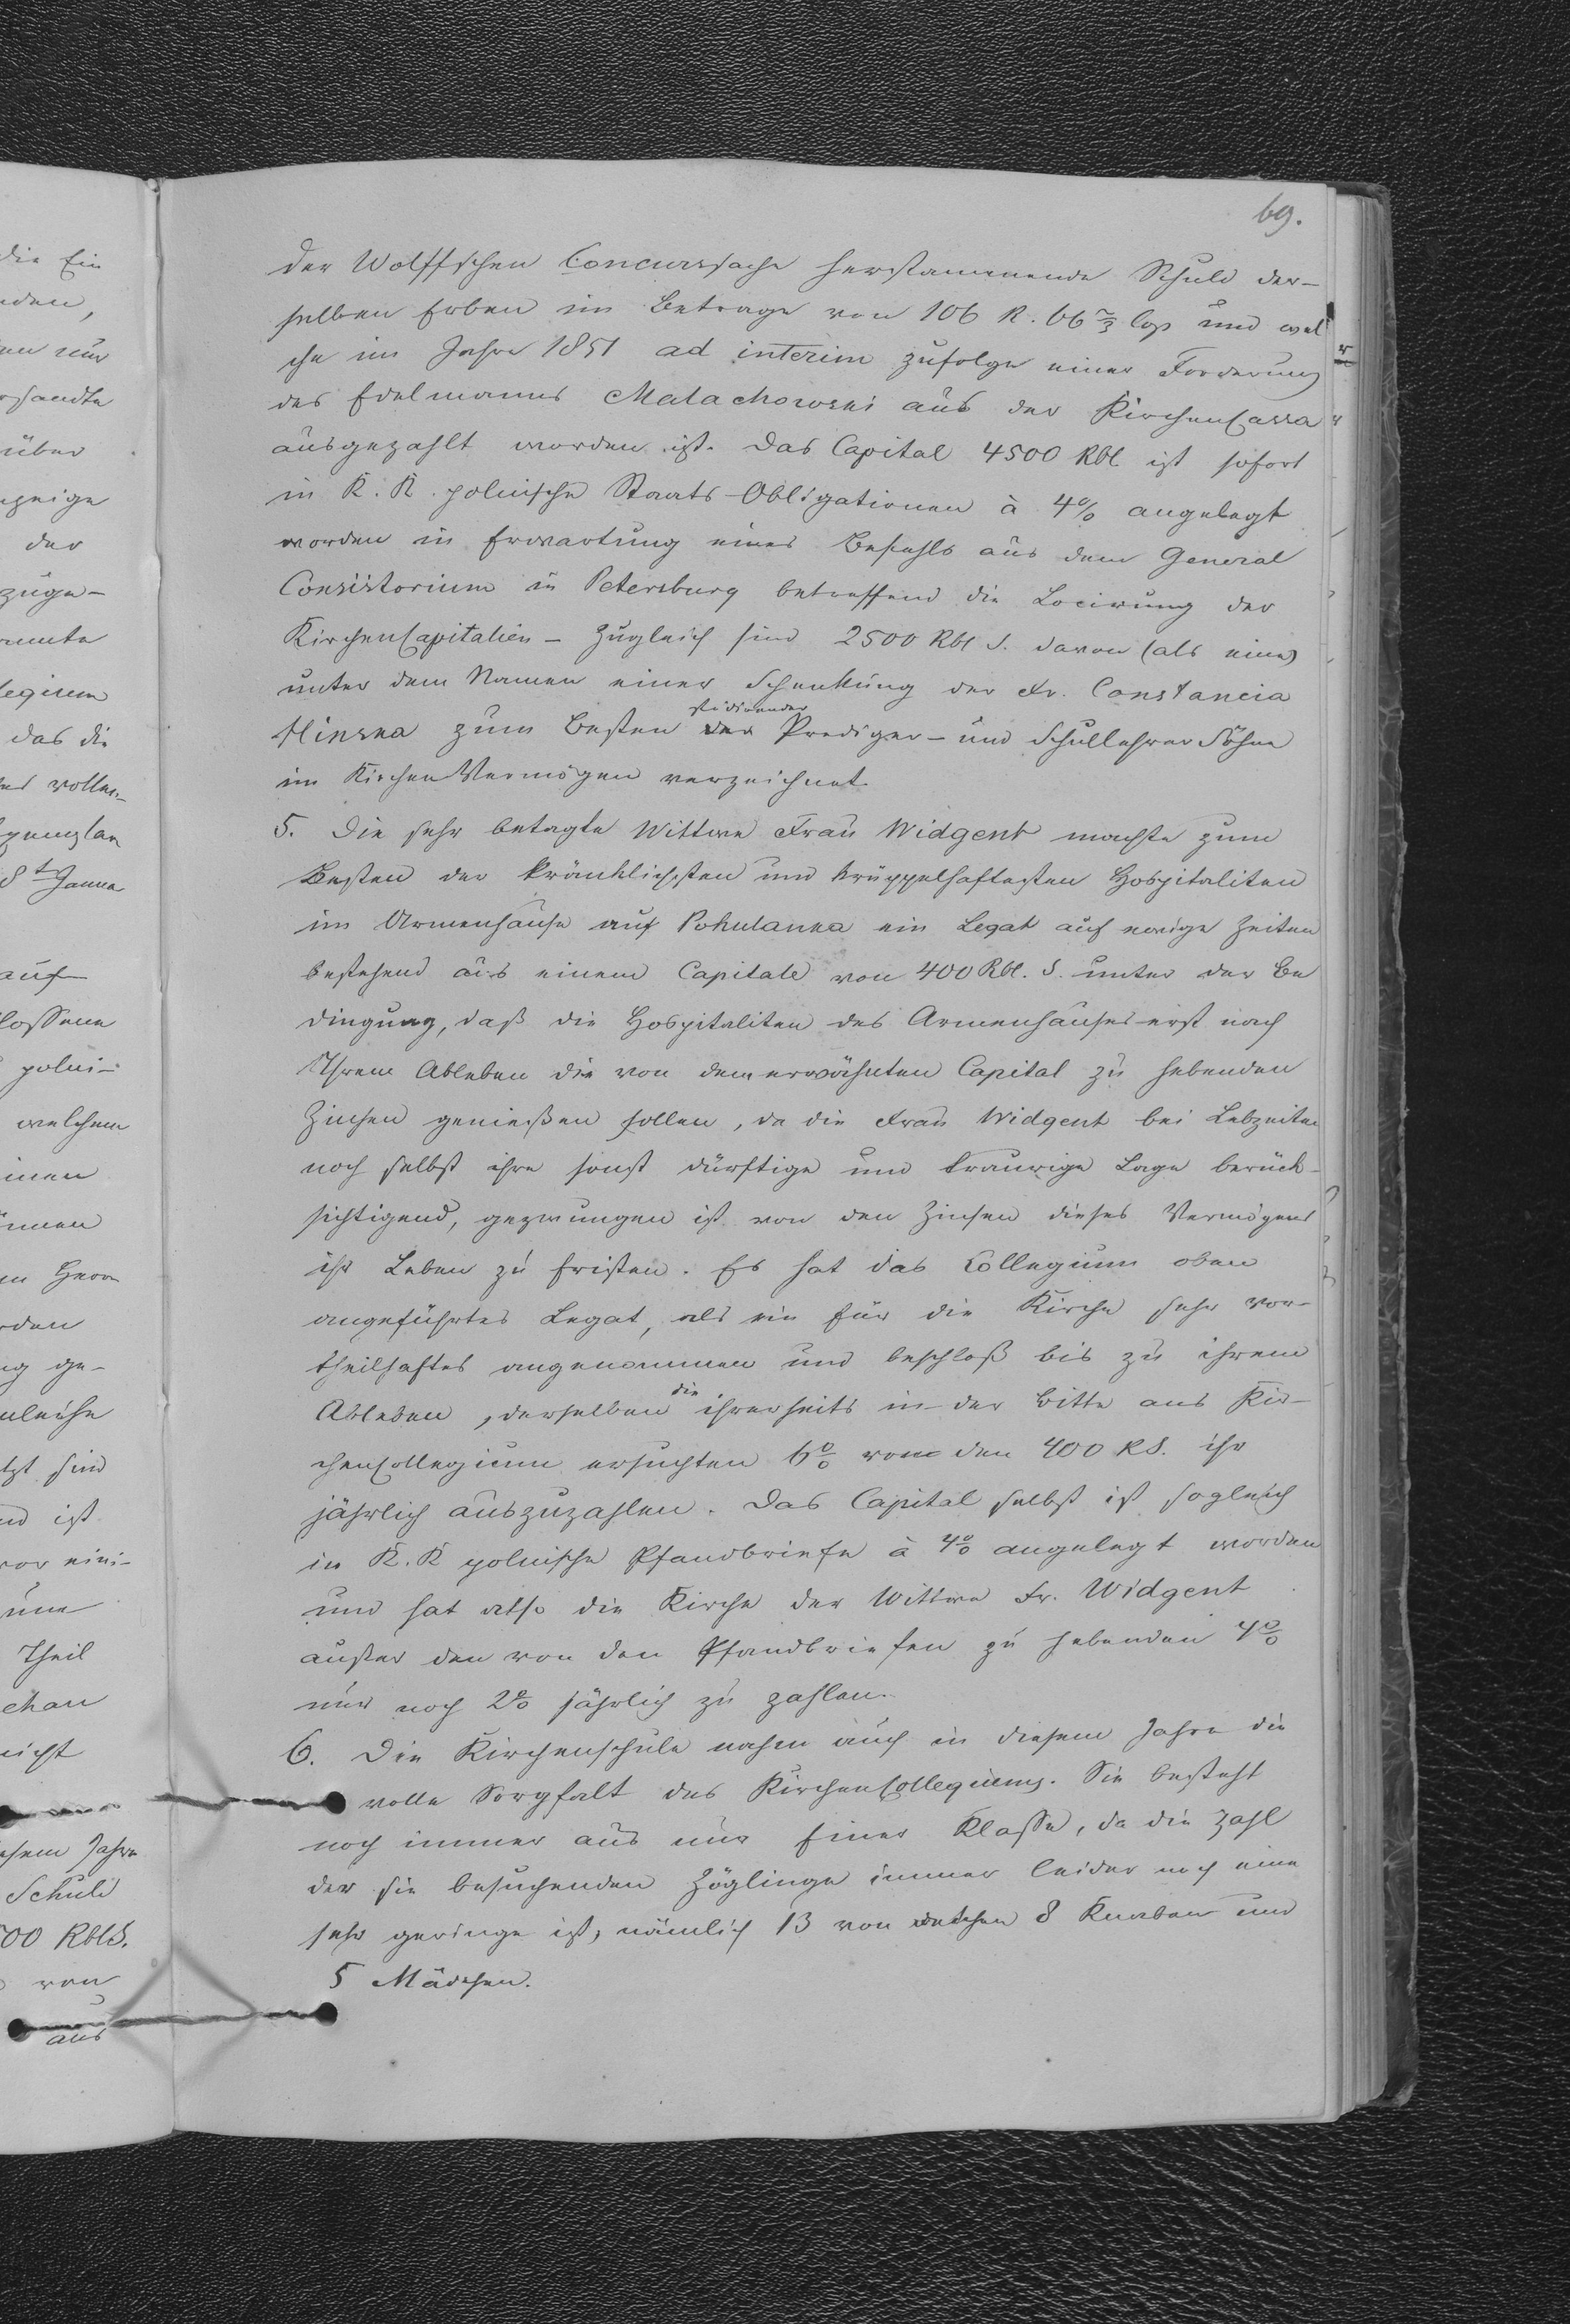 69.
der Wolffschen Concurssache herstammende Schuld der-
selben Erben im Betrage von 106 R. 66 2/3 Cop und wel
che im Jahre 1851 ad interim zufolge einer Forderung
des Edelmanns Malachowski aus der KirchenCassa
ausgezahlt worden ist. Das Capital 4500 Rbl ist sofort
in K. R. polnische Staats-Obligationen à 4% angelegt
worden in Erwartung eines Befehls aus dem General
Consistorium in Petersburg betreffend die Locirung der
KirchenCapitalien - Zugleich sind 2500 Rbl S. davon (als eine)
unter dem Namen einer Schenkung der Fr. Constancia
studirender
Hinska zum Besten der Prediger- und Schullehrer Söhne
im KirchenVermögen verzeichnet.
5. Die sehr betagte Wittwe Frau Widgent machte zum
Besten der kränklichsten und krüppelhaftesten Hospitaliten
im Armenhause auf Pohulanka ein Legat auf ewige Zeiten
bestehend aus einem Capitale von 400 Rbl. S. unter der Be
dingung, daß die Hospitaliten des Armenhauses erst nach
Ihrem Ableben die von dem erwähnten Capital zu hebenden
Zinsen genießen sollen, da die Frau Widgent bei Lebzeiten
noch selbst ihre sonst dürftige und traurige Lage berück-
sichtigend, gezwungen ist von den Zinsen dieses Vermögens
ihr Leben zu fristen. Es hat das Collegium oben
angeführtes Legat, als ein für die Kirche sehr vor-
theilhaftes angenommen und beschloß bis zu ihrem
die
Ableben, derselben ihrerseits in der Bitte ans Kir-
chenCollegium ersuchten 6% von den 400 RS. ihr
jährlich auszuzahlen. Das Capital selbst ist sogleich
in K. R polnische Pfandbriefe à 4% angelegt worden
und hat also die Kirche der Wittwe Fr. Widgent
außer den von den Pfandbriefen zu hebenden 4%
nur noch 2% jährlich zu zahlen.
6. Die Kirchenschule nahm auch in diesem Jahre die
volle Sorgfalt des KirchenCollegiums. Sie besteht
noch immer aus nur Einer Klasse, da die Zahl
der sie besuchenden Zöglinge immer leider noch eine
sehr geringe ist, nämlich 13 von welchen 8 Knaben und
5 Mädchen.